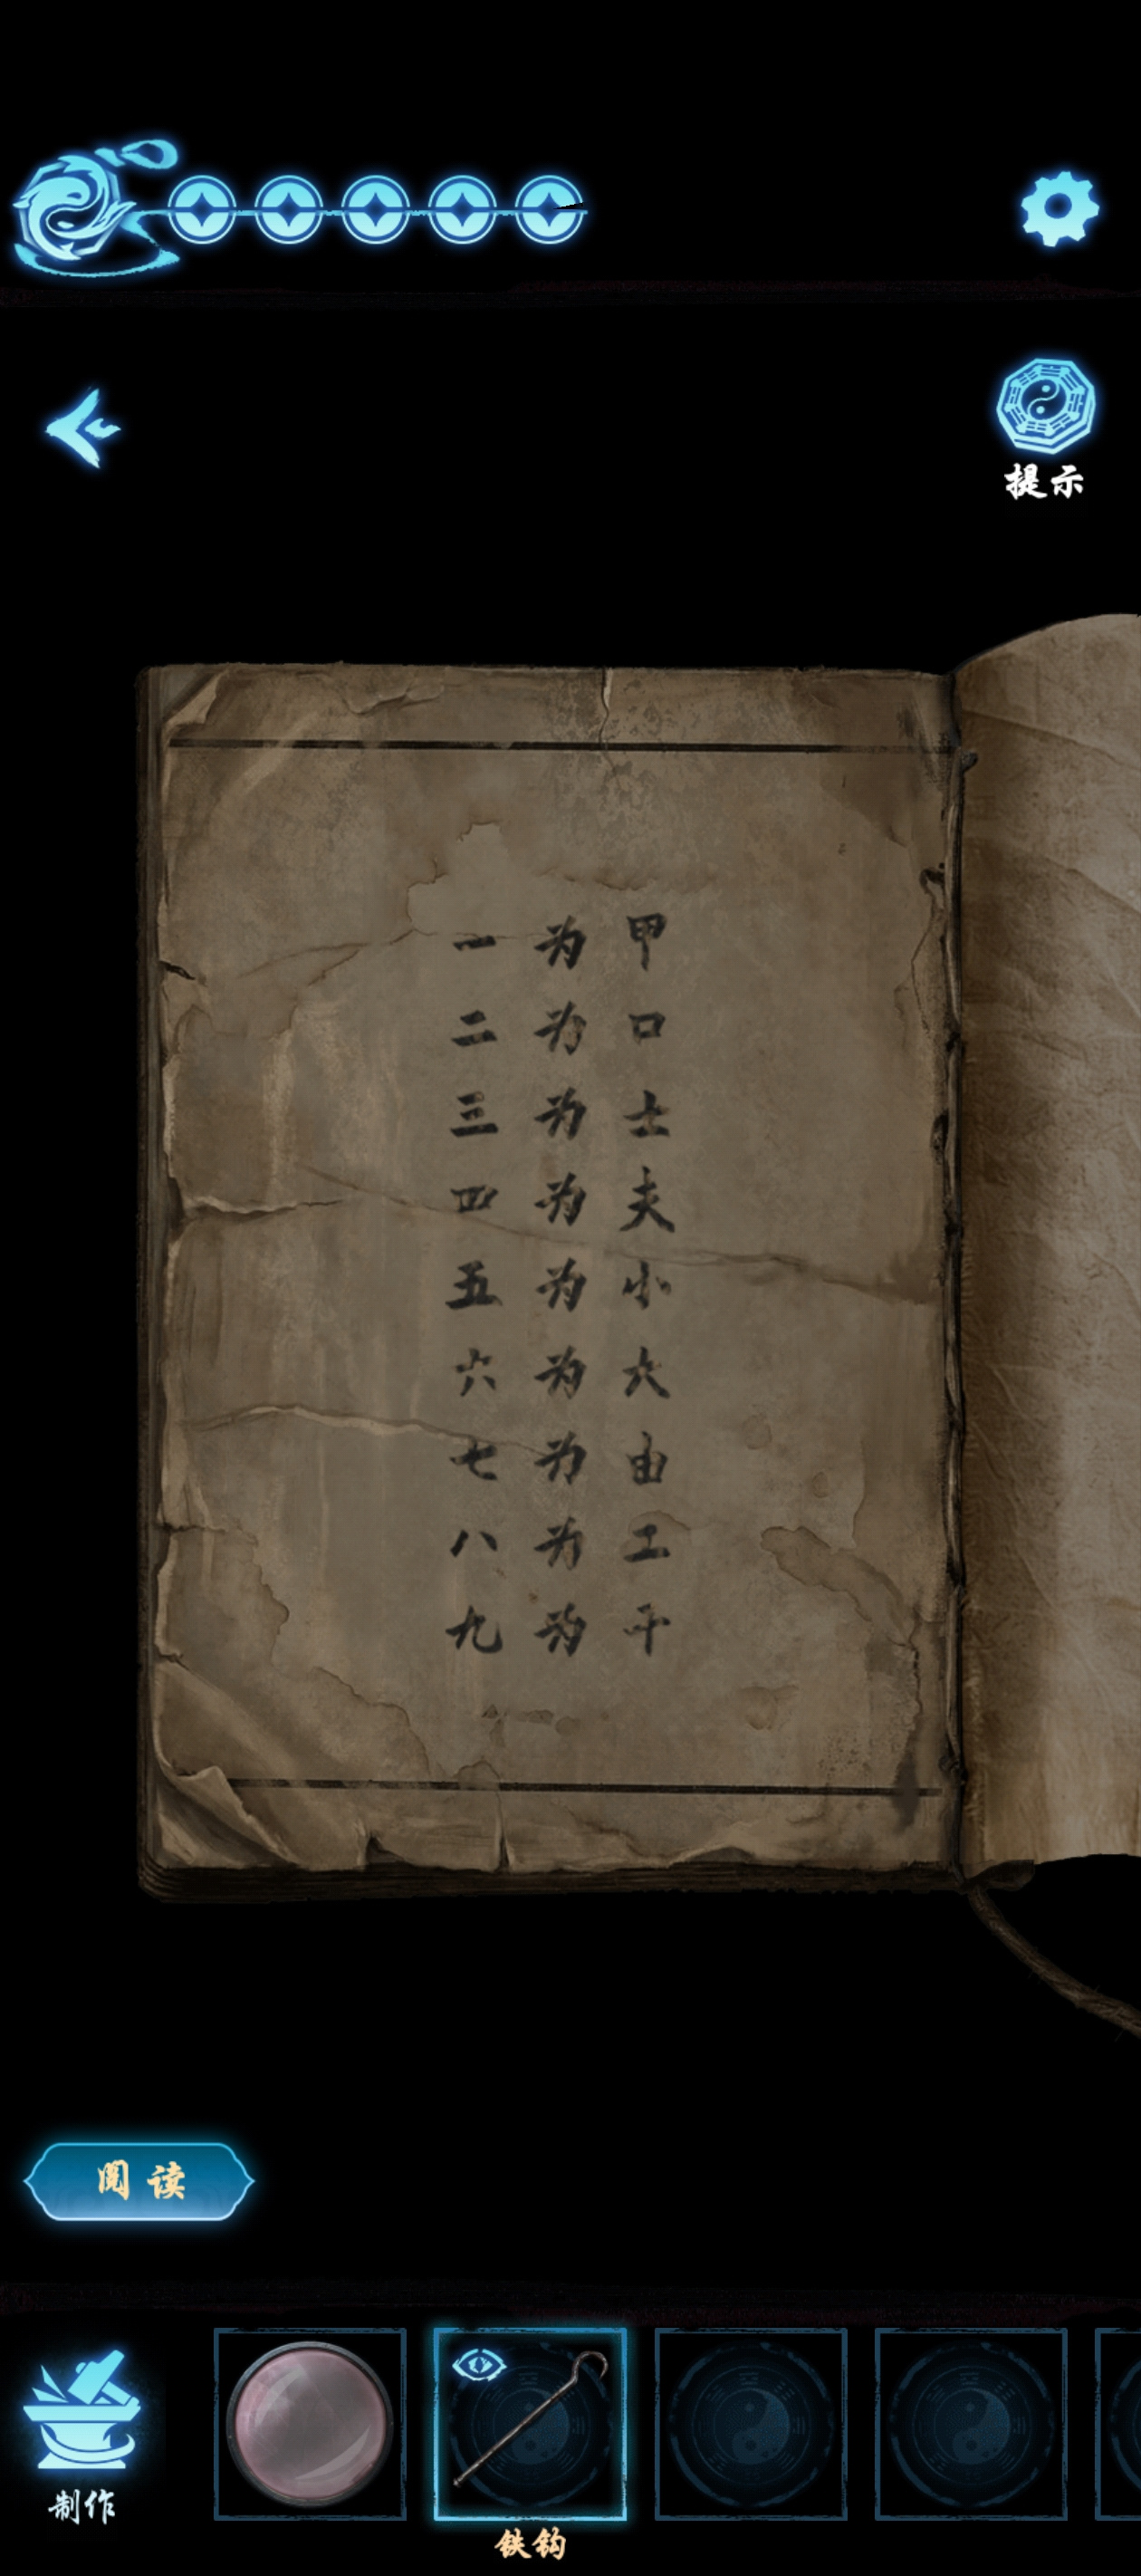 提示
甲口士夫小六由工千
为为为为为为为为为
一二三四五六七八九
阅读
制作
铁钩